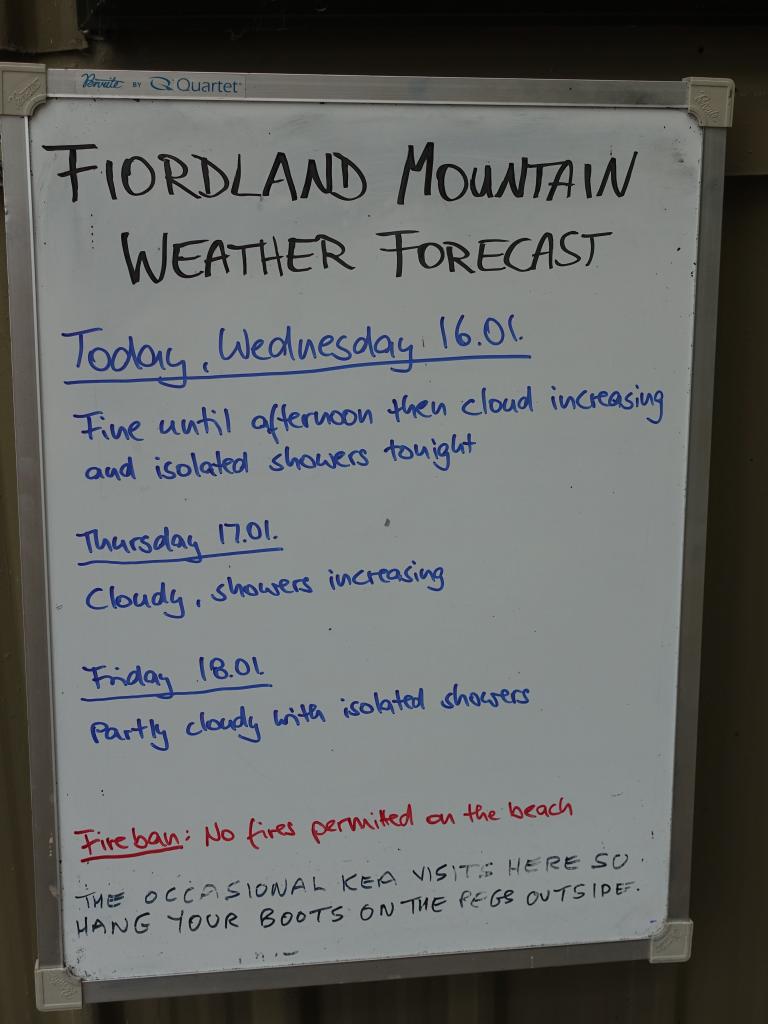 Penrite BY Quartet
FIORDLAND MOUNTAIN
WEATHER FORECAST
Today, Wednesday 16.01.
Fine until afternoon then cloud increasing
and isolated showers tonight
Thursday 17.01.
Cloudy, showers increasing
Friday 18.01.
Partly cloudy with isolated showers
Fire ban: No fires permitted on the beach
THE OCCASIONAL KEA VISITS HERE SO
HANG YOUR BOOTS ON THE PEGS OUTSIDE.